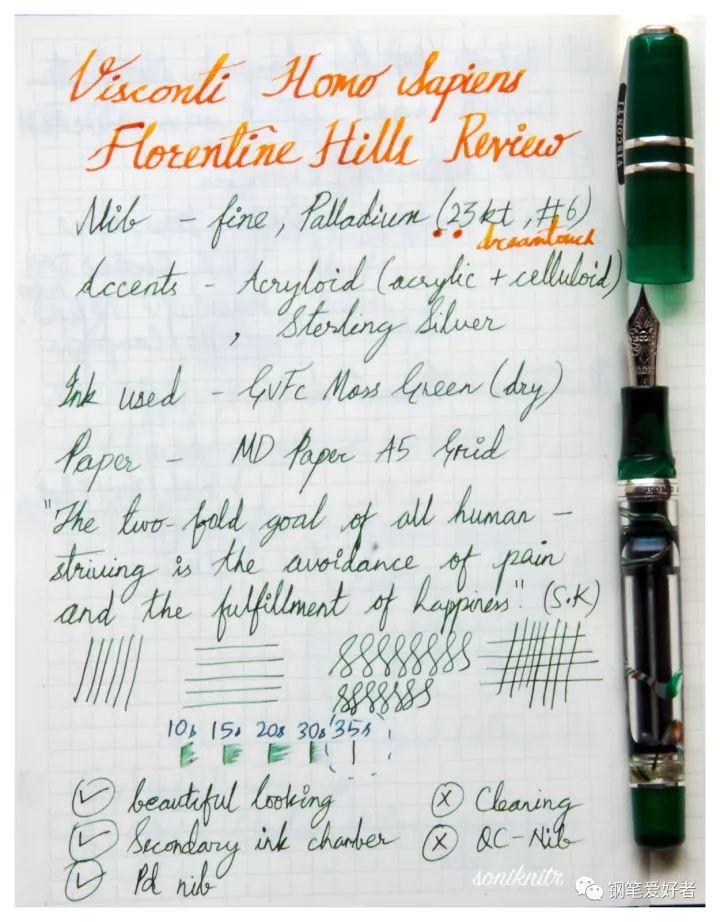 Visconti Homo Sapiens
Florentine Hills Review
Nib - fine, Palladium (23kt, #6)
dreamtouch
Accents - Acryloid (acrylic + celluloid)
, Sterling Silver
Ink used - GvFc Moss Green (dry)
Paper - MD Paper A5 Grid
"The two-fold goal of all human -
striving is the avoidance of pain
and the fulfillment of happiness". (S.K)
10s 15s 20s 30s 35s
beautiful looking
Secondary ink chamber
Pd nib
Cleaning
QC-Nib
VISCONTI
VISCONTI
soniknitr
钢笔爱好者